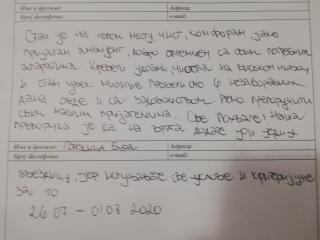 Име и презиме: Адреса:
Број телефона: e-mail:
Стан је на лепом месту, чист, комфоран, јако
пријатан амбијент, добро опремљен са свим потребним
апаратима. Кревети удобни, чистоћа на високом нивоу
и стан увек мирише. Провели смо 6 незаборавних
дана овде и са задовољством ћемо препоручити
свим нашим пријатељима. Све похвале! Наша
препорука је да на врата додате још једну
Име и презиме: Породица Адреса:
Број телефона: e-mail:
звездицу, јер испуњавате све услове и критеријуме
за то
26.07 – 01.08 2020